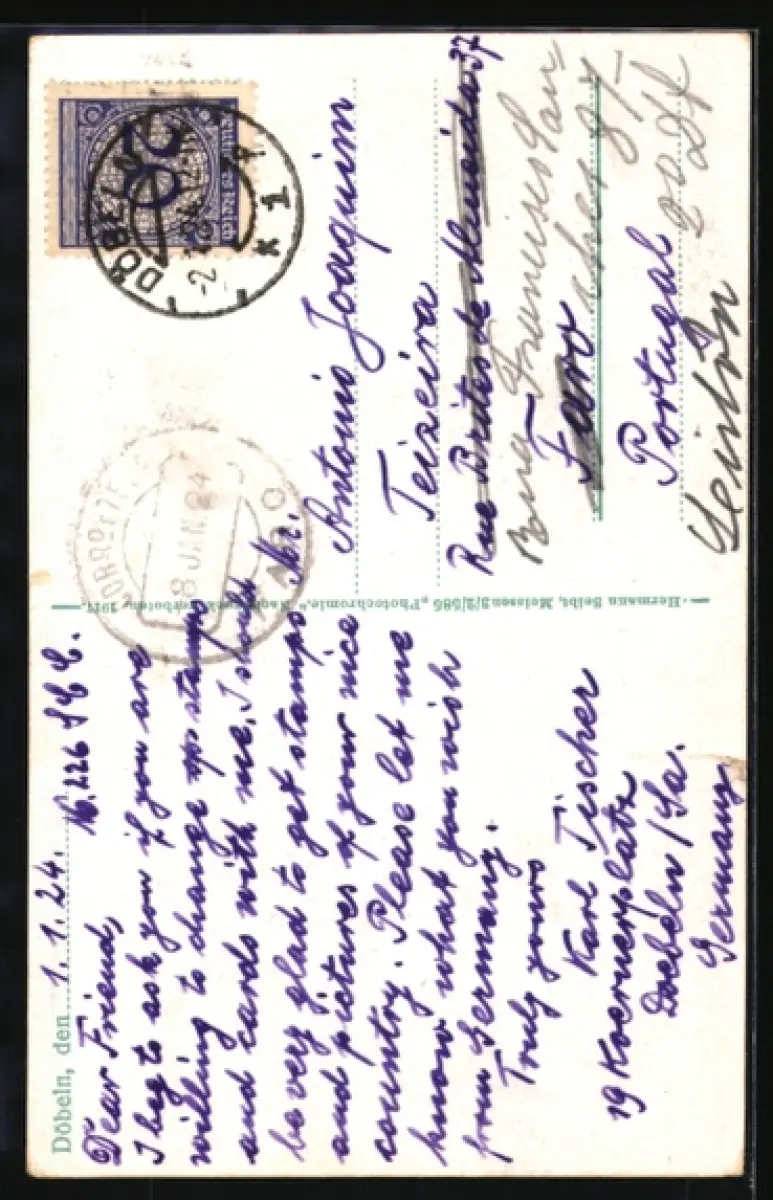 Döbeln, den 1.1.24. No. 226 S & C.
Dear Friend,
I beg to ask you if you are
willing to change stamps
and cards with me, I should
be very glad to get stamps
and pictures of your nice
country. Please let me
know what you wish
from Germany.
Truly yours
Karl Tischer
19 Koernerplatz
Doebeln / Sa.
Germany
Hermann Seibt, Meissen 3/2/586 „Photochromie." 1911.
DÖBELN
* 1
20
Deutsches Reich
8 JAN 24
Mr.
Antonio Joaquim
Teixeira
Rue Brites de Almeida 37
Faro
Portugal